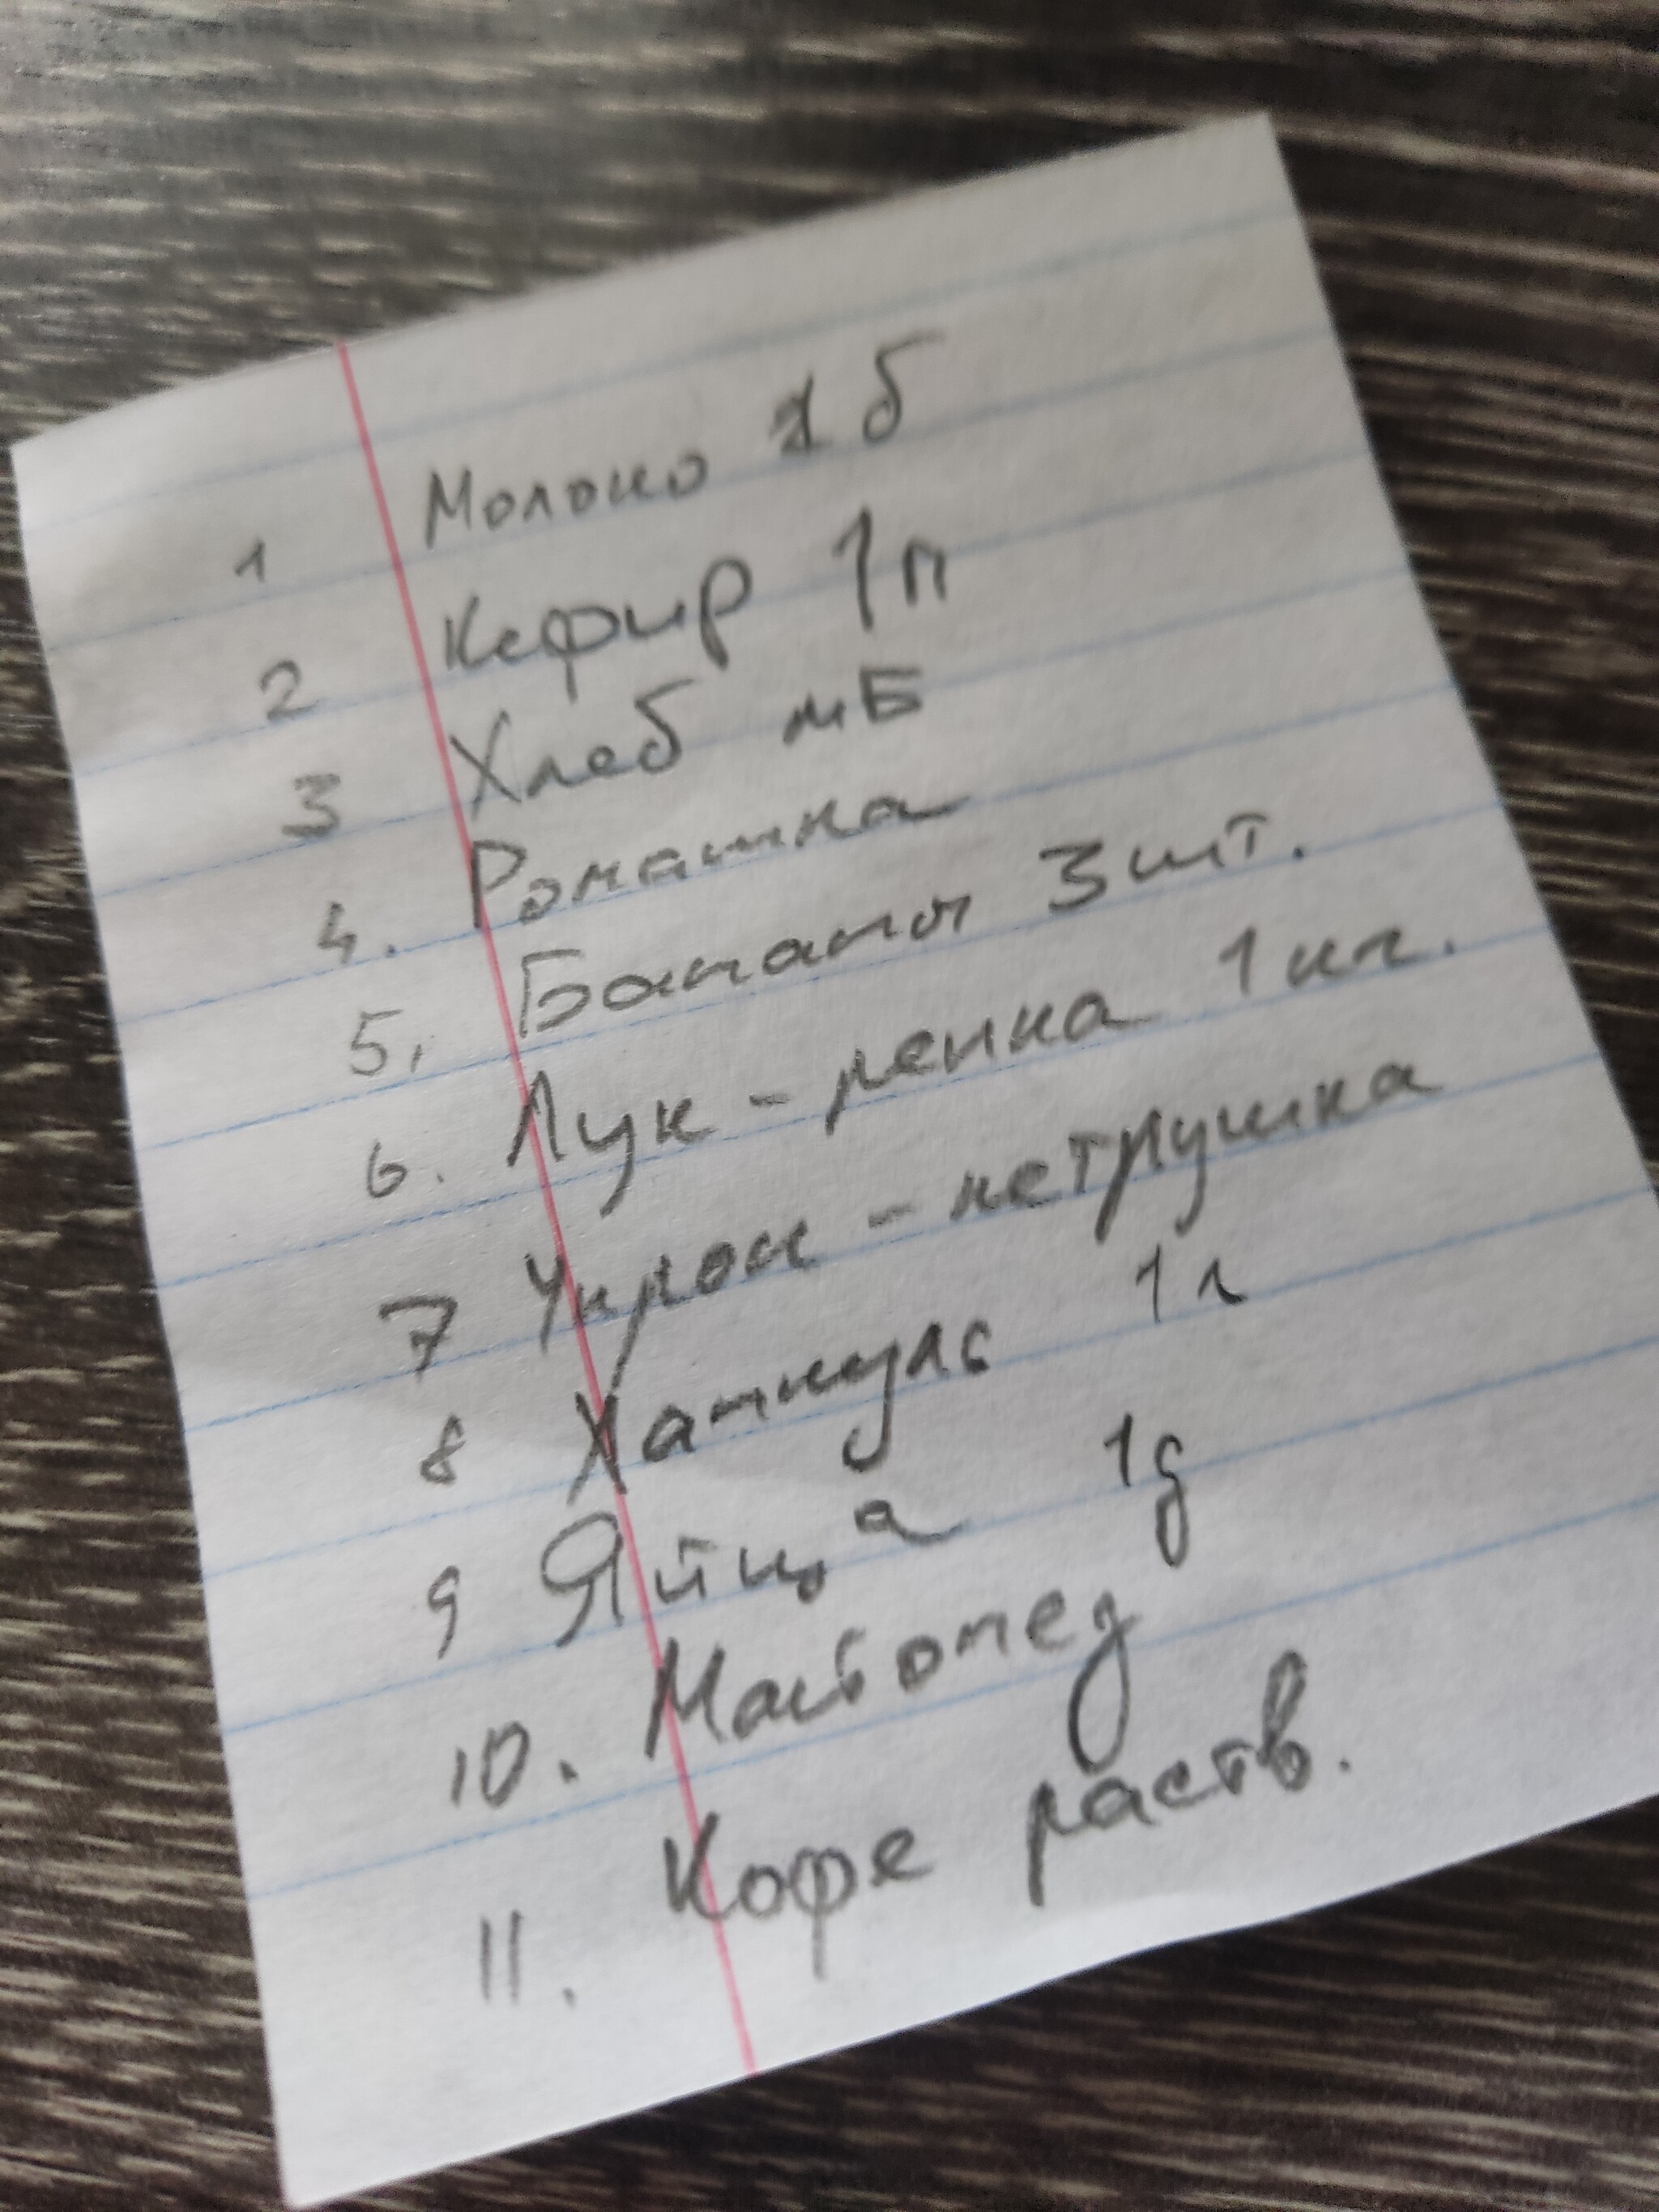 1 Молоко 1 б
2 Кефир 1 п
3 Хлеб мБ
4. Ромашка
5. Бананы 3 шт.
6. Лук-репка 1 кг.
7 Укроп - петрушка
8 1 л
9 Яйца 1 д
10. Майонез
11. Кофе раств.